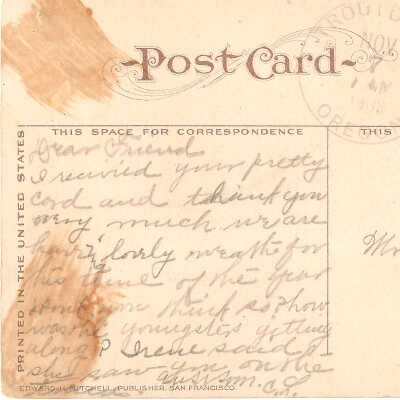 Post Card
TROUTD
NOV
7
OREGON
THIS SPACE FOR CORRESPONDENCE
THIS
PRINTED IN THE UNITED STATES
Dear Friend
I recivied your pretty
cord and thank you
very much we are
having lovely weather for
this time of the year
dont you think so? how
was the youngsters getting
along? Irene said
she saw you on the
EDWARD H. MITCHELL, PUBLISHER, SAN FRANCISCO.
Mr